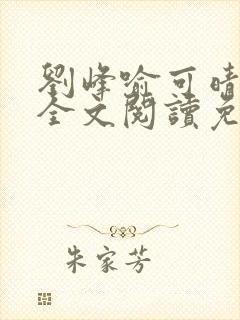 劉峰喻可晴
全文閱讀免
朱家芳